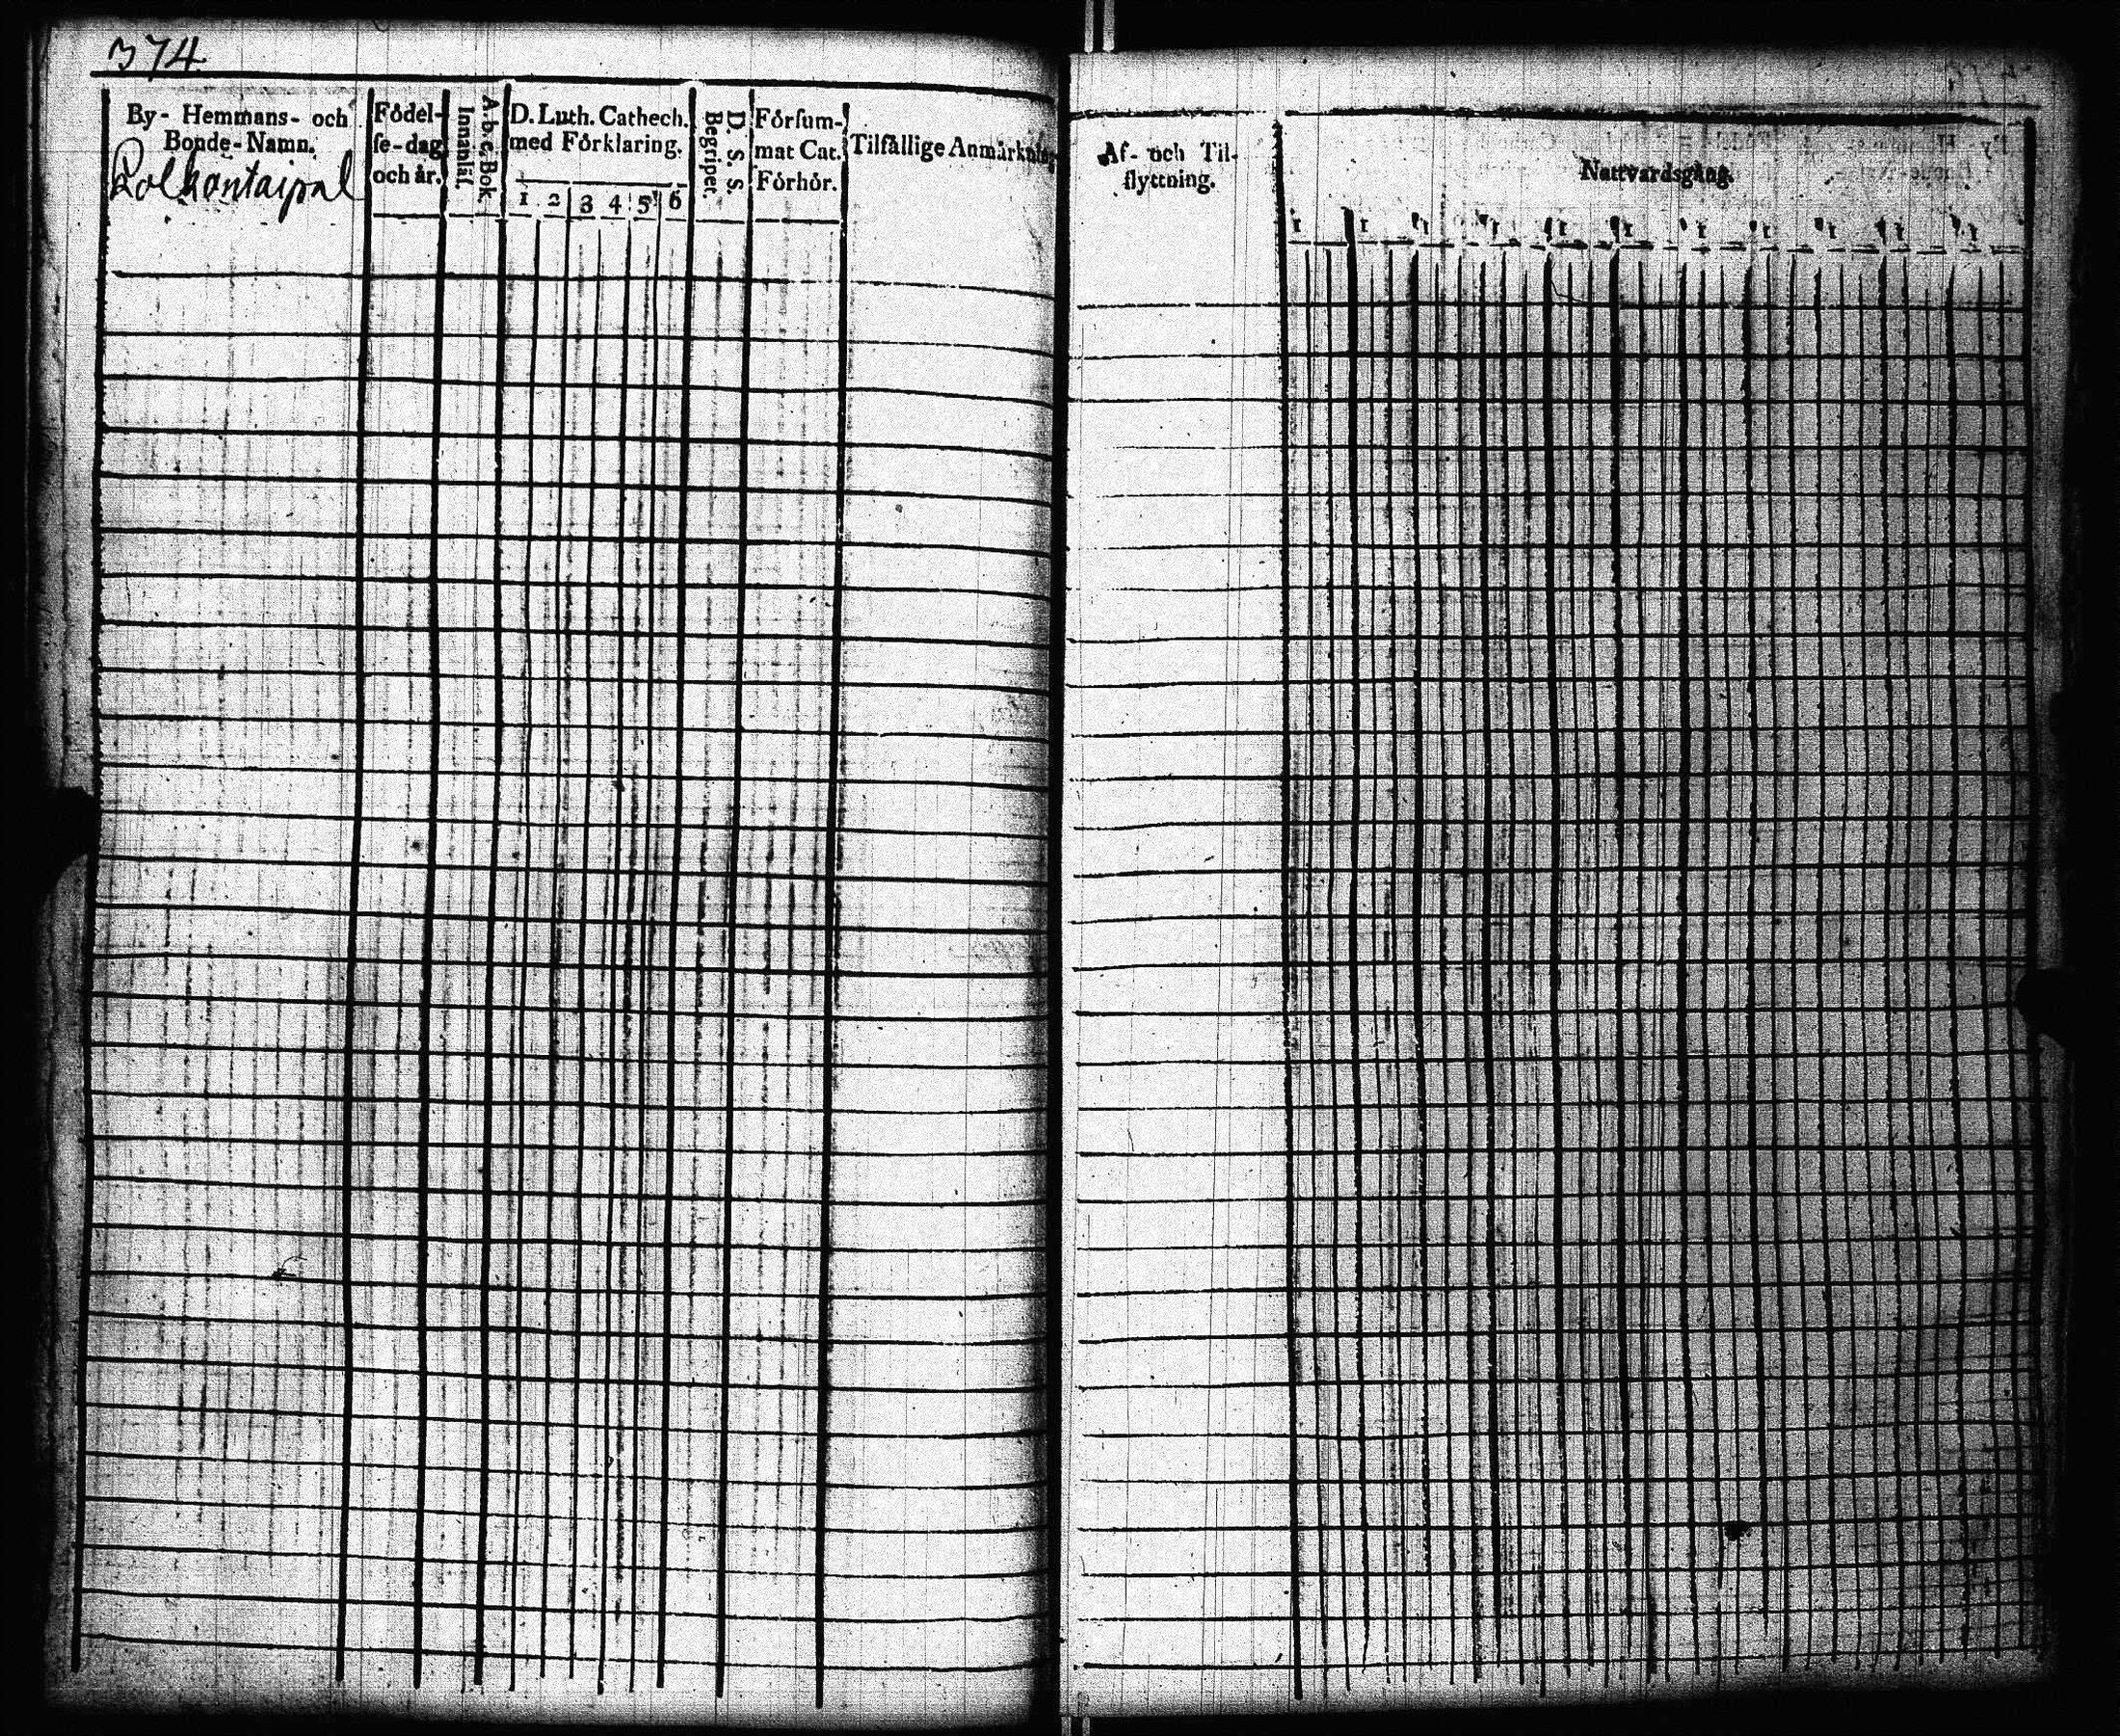 374
By- Hemmans- och
Bonde-Namn.
Polkantaipal
Födel-
se-dag
och år.
A. b. c. Bok.
Innanläs.
D. Luth. Cathech.
med Förklaring.
1 2 3 4 5 6
D. S. S.
Begripet.
Försum-
mat Cat.
Förhör.
Tilfällige Anmärkning
Af- och Til-
flyttning.
Nattvardsgång.
1 1 1 1 1 1 1 1 1 1 1